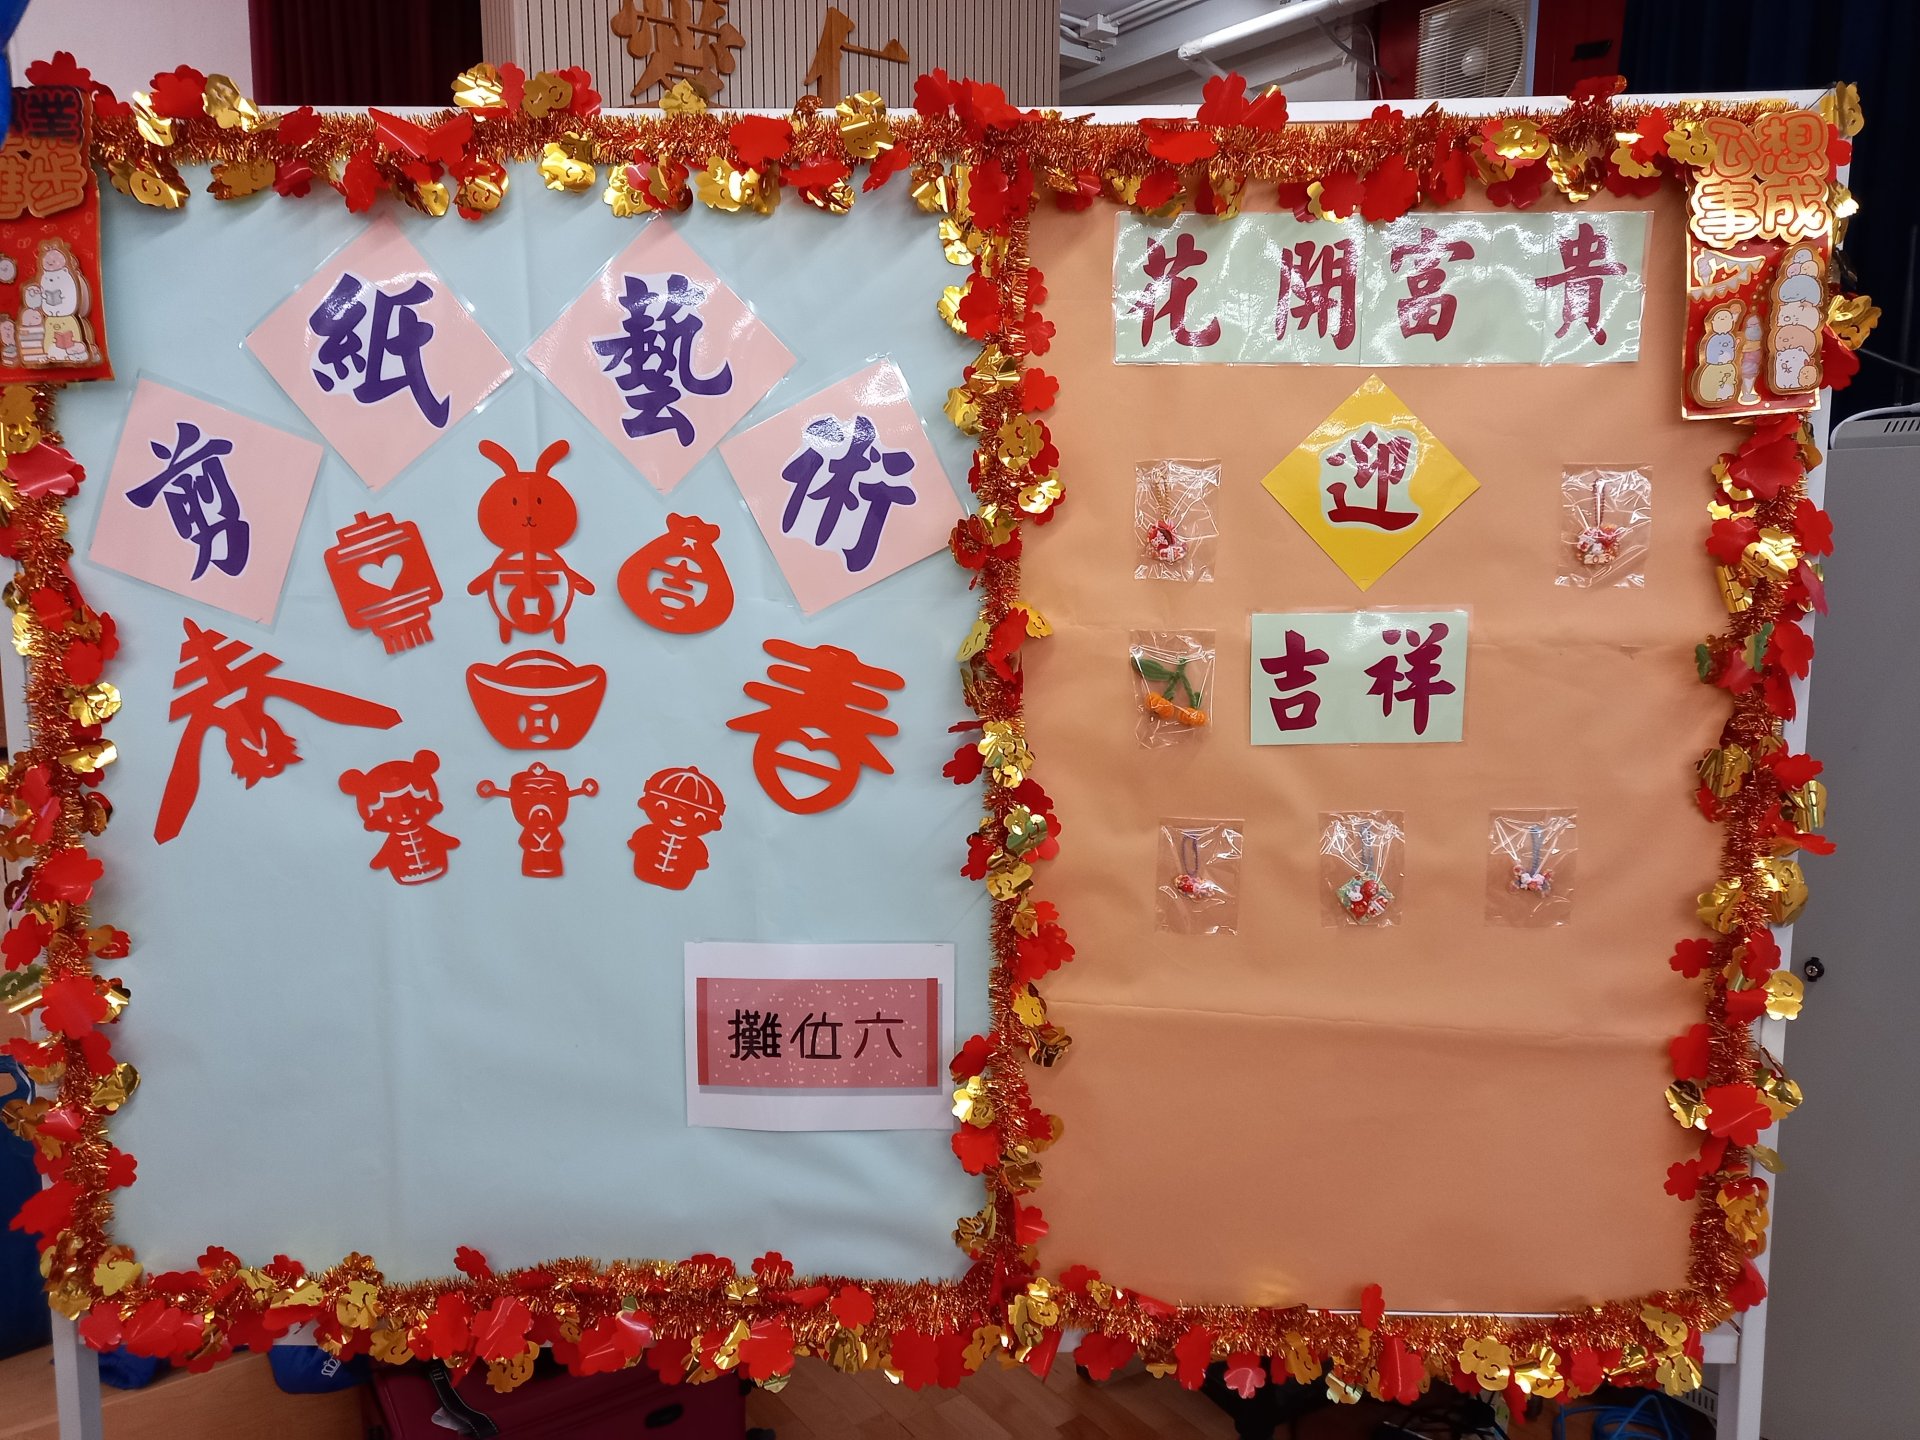 愛 仁
學業
進步
心想
事成
剪紙藝術
吉
吉
春
春
攤位六
花開富貴
迎
吉祥